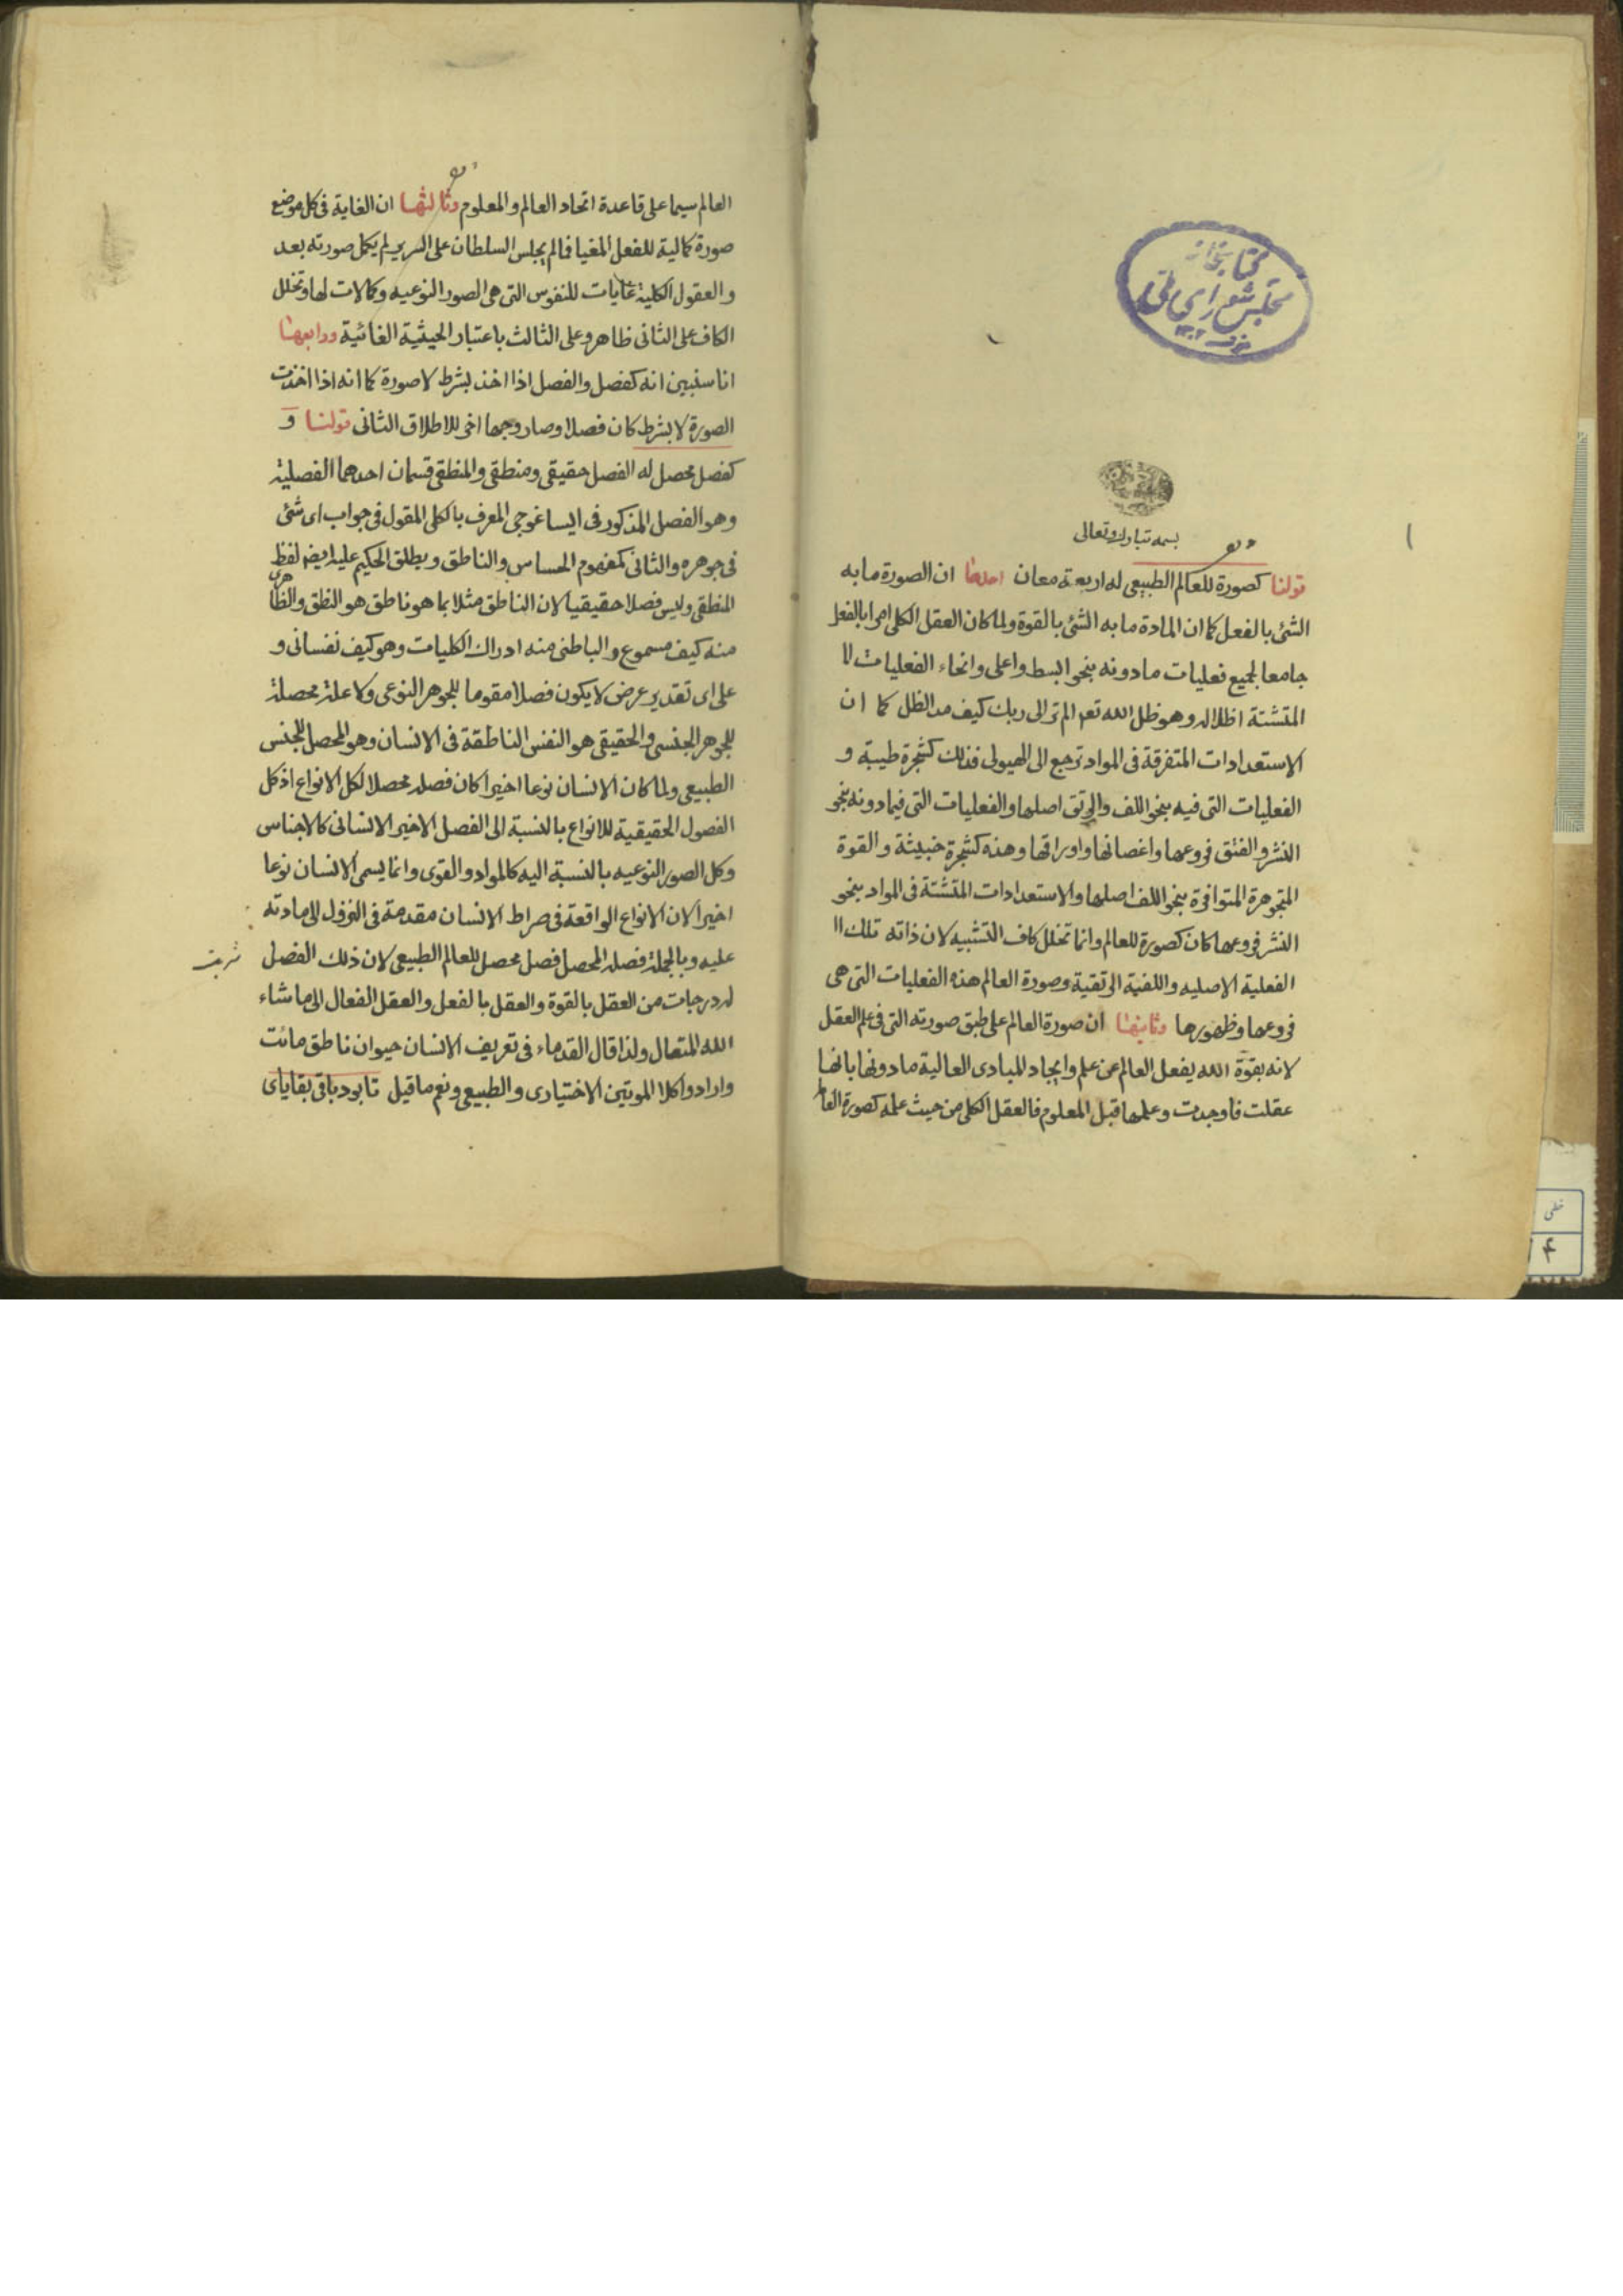 كتابخانه
مجلس شورای ملی
بسمه تبارك وتعالى
قولنا كصورة للعالم الطبيعى له اربعة معان احدها ان الصورة ما به
الشئ بالفعل كما ان المادة ما به الشئ بالقوة ولما كان العقل الكلى امرا بالفعل
جامعا لجميع فعليات ما دونه بنحو ابسط واعلى وانحاء الفعليات ال
المتشتة اظلاله وهو ظل الله تعم الم تر الى ربك كيف مد الظل كما ان
الاستعدادات المتفرقة فى المواد ترجع الى الهيولى فذلك كشجرة طيبة و
الفعليات التى فيه بنحو اللف والرتق اصلها والفعليات التى فيما دونه بنحو
النشر والفتق فروعها واغصانها واوراقها وهذه كشجرة خبيثة والقوة
المتجوهرة المتوافرة بنحو اللف اصلها والاستعدادات المتشتة فى المواد بنحو
النشر فروعها كان كصورة للعالم وانما تخلل كاف التشبيه لان ذاته تلك اا
الفعلية الاصليه واللفية الرتقية وصورة العالم هذه الفعليات التى هى
فروعها وظهورها وثانيها ان صورة العالم على طبق صورته التى فى علم العقل
لانه بقوة الله يفعل العالم عن علم وايجاد للمبادى العالية ما دونها بانها
عقلت فاوجدت وعلمها قبل المعلوم فالعقل الكلى من حيث علمه كصورة العالم
العالم سيما على قاعدة اتحاد العالم والمعلوم وثالثها ان الغاية فى كل موضع
صورة كمالية للفعل المغيا فما لم يجلس السلطان على السرير لم يكمل صورته بعد
والعقول الكلية غايات للنفوس التى هى الصور النوعيه وكمالات لها وتخلل
الكاف على الثانى ظاهر وعلى الثالث باعتبار الحيثية الغائية ورابعها
انا سنبين انه كفصل والفصل اذا اخذ بشرط لا صورة كما انه اذا اخذت
الصورة لا بشرط كان فصلا وصار وجها اخر للاطلاق الثانى قولنا و
كفصل محصل له الفصل حقيقى ومنطقى والمنطقى قسمان احدهما الفصلية
وهو الفصل المذكور فى ايساغوجى المعرف بالكلى المقول فى جواب اى شئ
فى جوهره والثانى كمفهوم الحساس والناطق ويطلق الحكيم عليه ايضه لفظ
المنطقى وليس فصلا حقيقيا لان الناطق مثلا بما هو ناطق هو النطق والظاهرى
منه كيف مسموع والباطنى منه ادراك الكليات وهو كيف نفسانى و
على اى تقدير عرض لا يكون فصلا مقوما للجوهر النوعى ولا علة محصلة
للجوهر الجنسى والحقيقى هو النفس الناطقة فى الانسان وهو المحصل للجنس
الطبيعى ولما كان الانسان نوعا اخيرا كان فصله محصلا لكل الانواع اذ كل
الفصول الحقيقية للانواع بالنسبة الى الفصل الاخير الانسانى كالاجناس
وكل الصور النوعيه بالنسبة اليه كالمواد والقوى وانما يسمى الانسان نوعا
اخيرا لان الانواع الواقعة فى صراط الانسان مقدمة فى النزول الى مادته
عليه وبالجملة فصله المحصل فصل محصل للعالم الطبيعى لان ذلك الفصل
له درجات من العقل بالقوة والعقل بالفعل والعقل الفعال الى ما شاء
الله المتعال ولذا قال القدماء فى تعريف الانسان حيوان ناطق مائت
وارادوا كلا الموتين الاختيارى والطبيعى ونعم ما قيل تا بود باقى بقاياى
خطى
۴